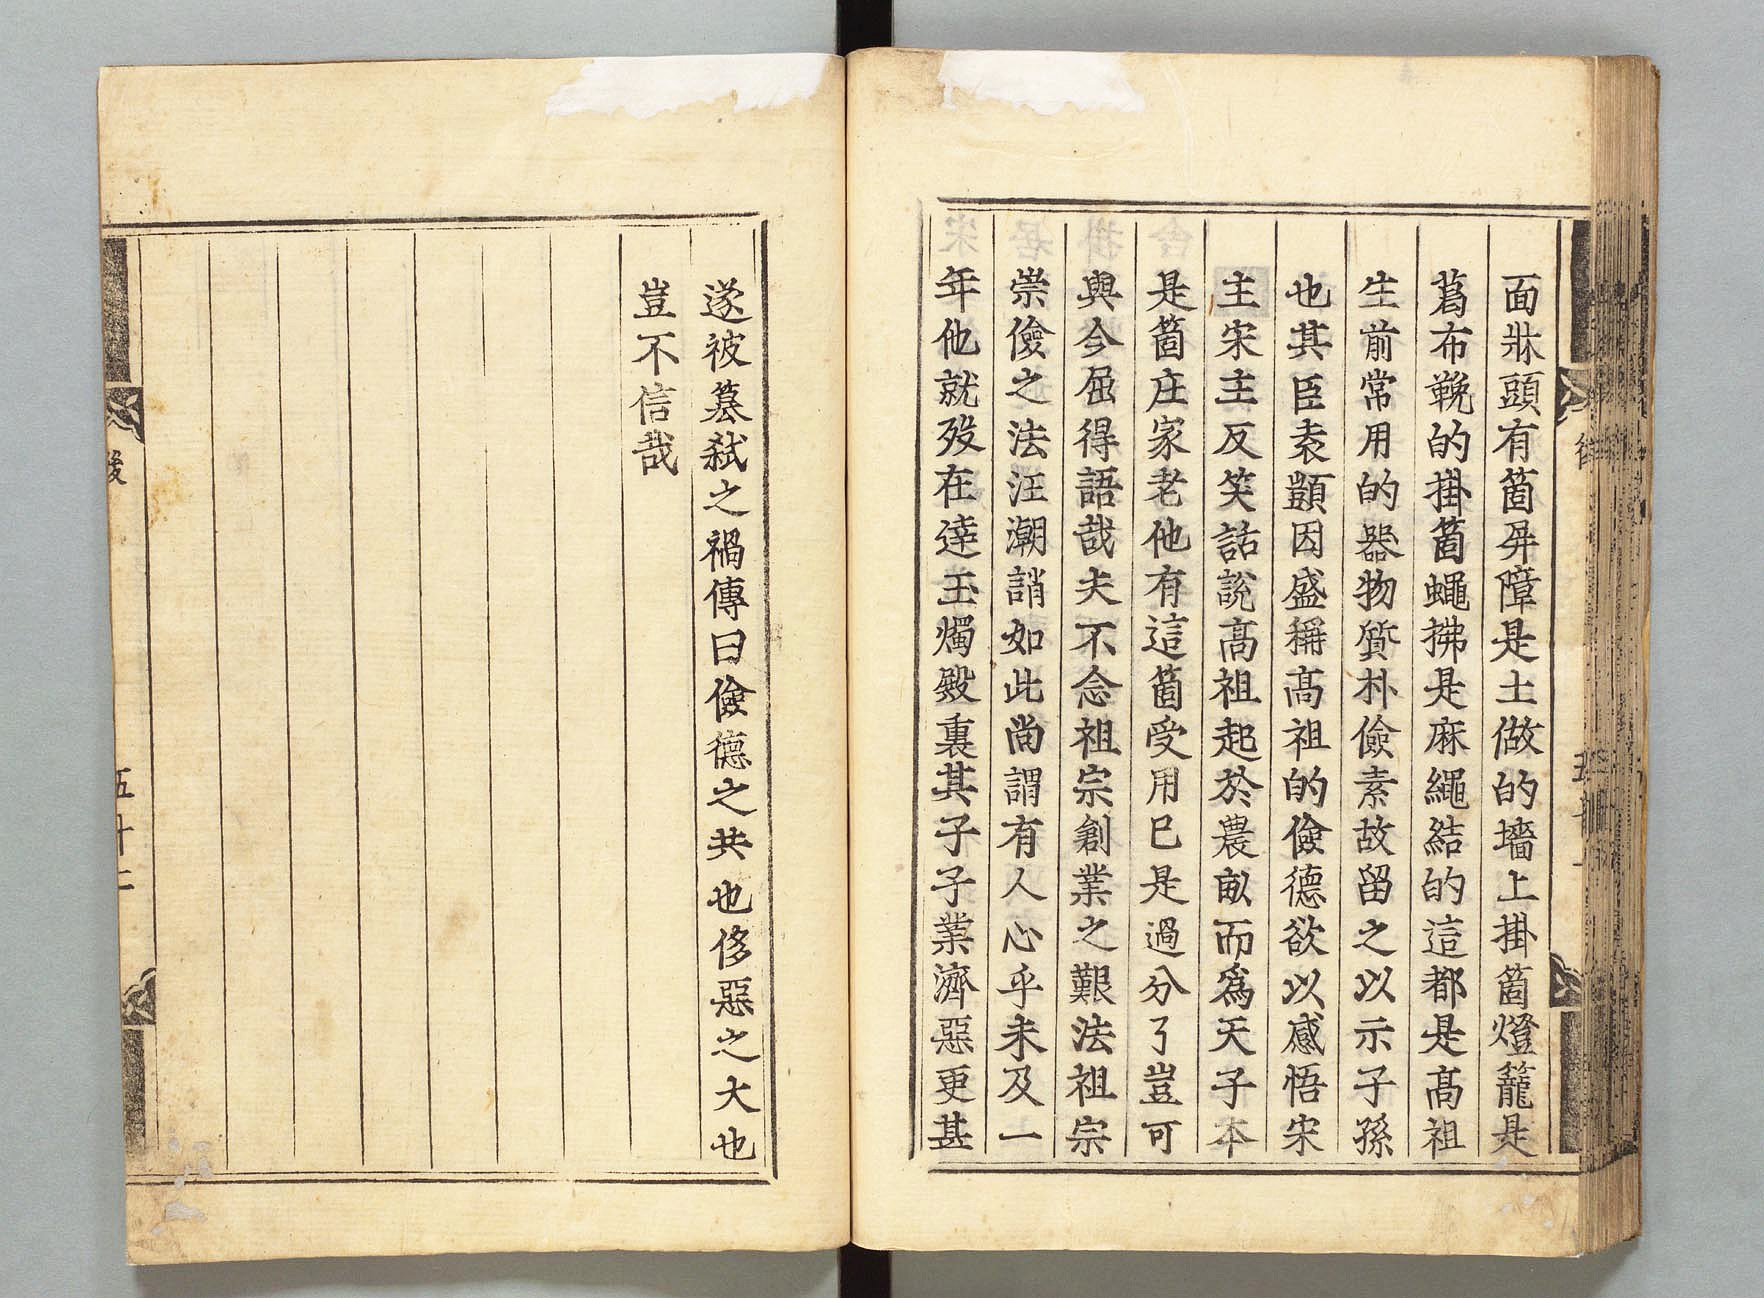 面牀頭有箇屏障是土做的墻上掛箇燈籠是
葛布鞔的掛箇蠅拂是麻繩結的這都是髙祖
生前常用的器物質朴儉素故留之以示子孫
也其臣袁顗因盛稱髙祖的儉德欲以感悟宋
主宋主反笑話說髙祖起於農畝而爲天子本
是箇庄家老他有這箇受用已是過分了豈可
與今屈得語哉夫不念祖宗創業之艱法祖宗
崇儉之法汪潮誚如此尚謂有人心乎未及一
年他就歿在逹玉燭殿裏其子子業濟惡更甚
遂被簒弑之禍傳曰儉德之共也侈惡之大也
豈不信哉
後
五十二